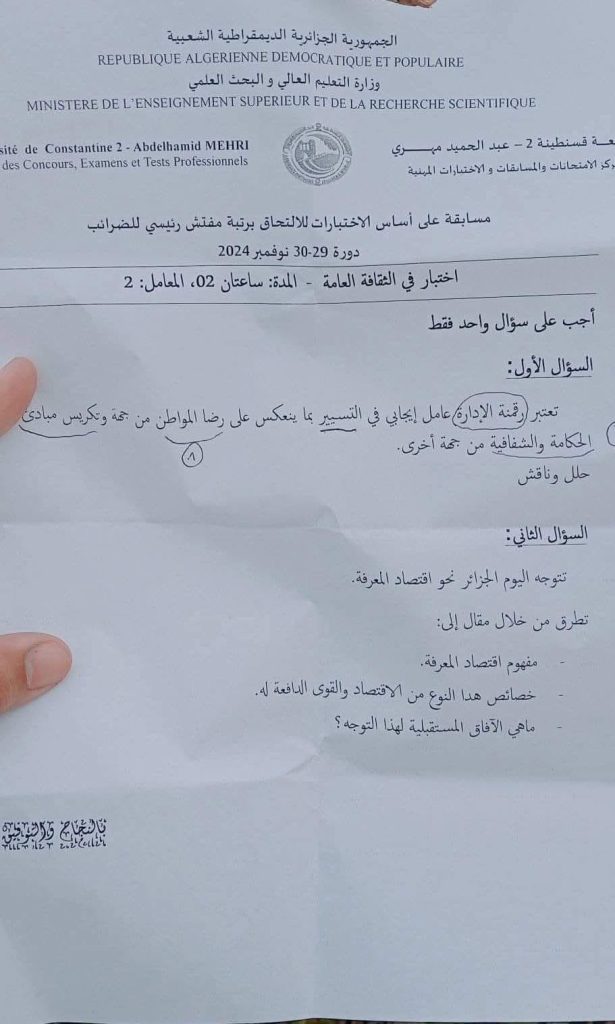 الجمهورية الجزائرية الديمقراطية الشعبية
REPUBLIQUE ALGERIENNE DEMOCRATIQUE ET POPULAIRE
وزارة التعليم العالي و البحث العلمي
MINISTERE DE L'ENSEIGNEMENT SUPERIEUR ET DE LA RECHERCHE SCIENTIFIQUE
sité de Constantine 2 - Abdelhamid MEHRI
des Concours, Examens et Tests Professionnels
قسنطينة 2 – عبد الحميد مهري
الامتحانات والمسابقات و الاختبارات المهنية
مسابقة على أساس الاختبارات للالتحاق برتبة مفتش رئيسي للضرائب
دورة 29-30 نوفمبر 2024
اختبار في الثقافة العامة - المدة: ساعتان 02، المعامل: 2
أجب على سؤال واحد فقط
السؤال الأول:
تعتبر رقمنة الإدارة عامل إيجابي في التسيير بما ينعكس على رضا المواطن من جهة وتكريس مبادئ
الحكامة والشفافية من جهة أخرى.
حلل وناقش
السؤال الثاني:
تتوجه اليوم الجزائر نحو اقتصاد المعرفة.
تطرق من خلال مقال إلى:
- مفهوم اقتصاد المعرفة.
- خصائص هدا النوع من الاقتصاد والقوى الدافعة له.
- ماهي الآفاق المستقبلية لهذا التوجه؟
بالنجاح والتوفيق